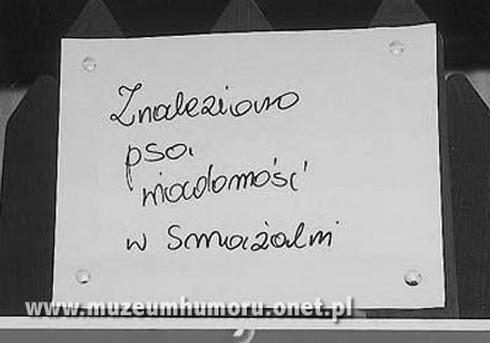 Znaleziono
psa.
wiadomość
w Smażalni
www.muzeumhumoru.onet.pl